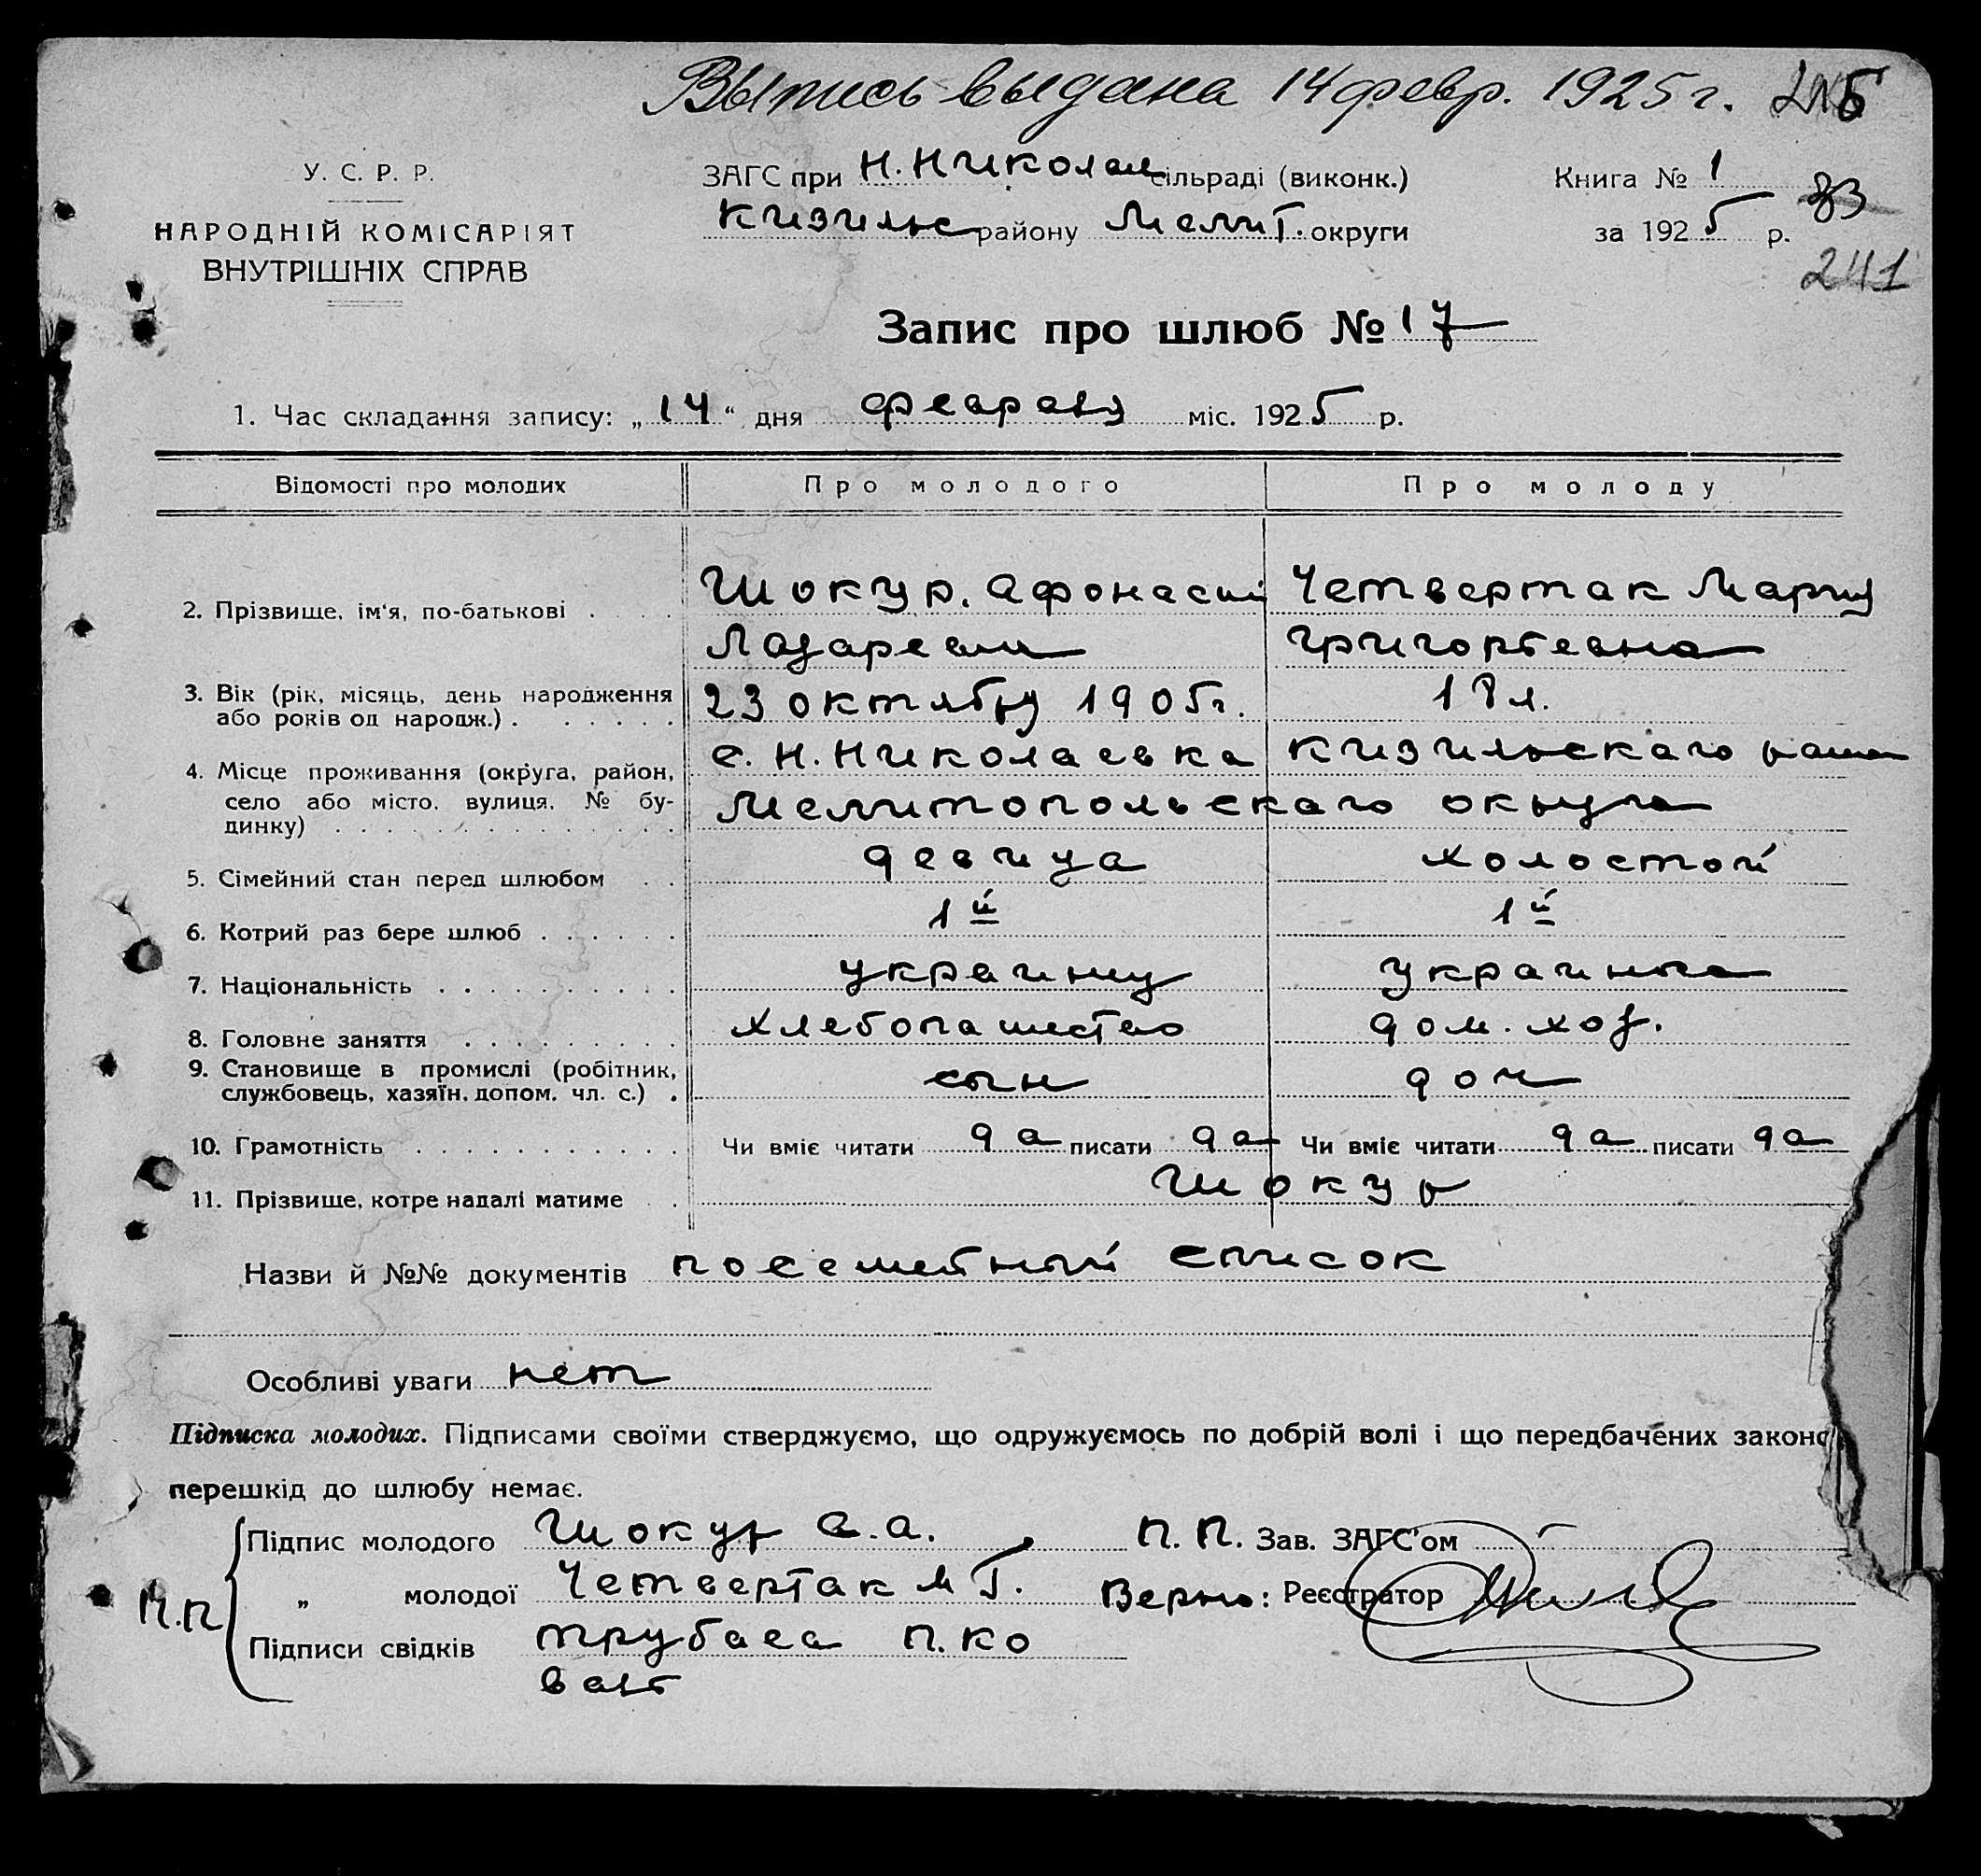 Выпись выдана 14 февр. 1925 г.
У. С. Р. Р.
НАРОДНІЙ КОМІСАРІЯТ
ВНУТРІШНІХ СПРАВ
ЗАГС при Н. Николаев сільраді (виконк.)
Кизильс району Мелит. округи
Книга № 1
за 1925 р.
83
241
Запис про шлюб № 17
1. Час складання запису: „14“ дня февраля міс. 1925 р.
Відомості про молодих Про молодого Про молоду
2. Прізвище, ім'я, по-батькові Шокур. Афонасий Четвертак Мария
Лазаревич Григорьевна
3. Вік (рік, місяць, день народження 23 октября 1905 г. 18 л.
або років од народж.)
4. Місце проживання (округа, район, с. Н. Николаевка Кизильскаго раиона
село або місто, вулиця, № бу- Мелитопольскаго округа
динку)
5. Сімейний стан перед шлюбом девица холостой
6. Котрий раз бере шлюб 1й 1й
7. Національність украинец украинка
8. Головне заняття хлебопашество дом. хоз.
9. Становище в промислі (робітник, сын доч
службовець, хазяїн, допом. чл. с.)
10. Грамотність Чи вміє читати да писати да Чи вміє читати да писати да
11. Прізвище, котре надалі матиме Шокур
Назви й №№ документів посемейный список
Особливі уваги нет
Підписка молодих. Підписами своїми стверджуємо, що одружуємось по добрій волі і що передбачених законо
перешкід до шлюбу немає.
Підпис молодого Шокур А. А. П. П. Зав. ЗАГС'ом
М.П „ молодої Четвертак М Г. Верно: Реєстратор
Підписи свідків Трубаса П. Ко
валь